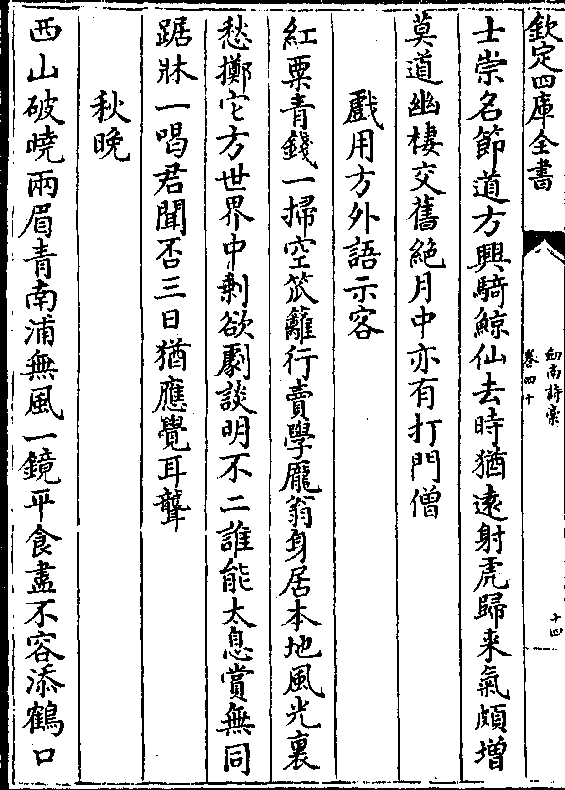 欽定四庫全書
劍南詩稾
卷四十
十四
士崇名節道方興騎鯨仙去時猶遠射虎歸来氣頗増
莫道幽棲交舊絶月中亦有打門僧
戲用方外語示客
紅粟青錢一掃空笊籬行賣學龎翁身居本地風光裏
愁擲它方世界中剰欲劇談明不二誰能太息賞無同
踞牀一喝君聞否三日猶應覺耳聾
秋晚
西山破曉兩眉青南浦無風一鏡平食盡不容添鶴口